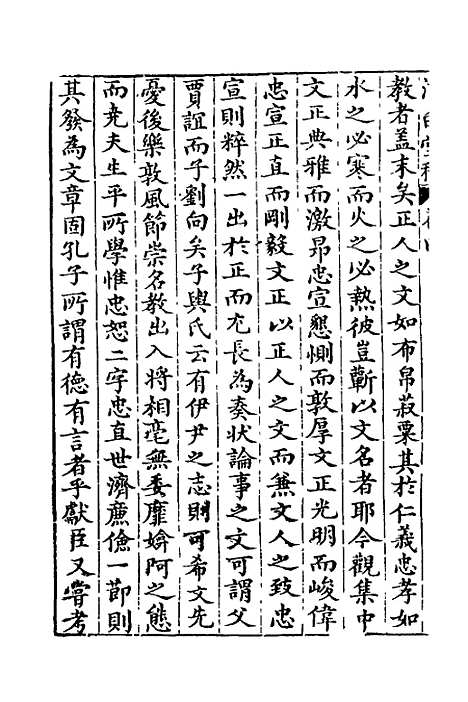 教者盖末矣正人之文如布帛菽粟其於仁義忠孝如
水之必寒而火之必熱彼豈蘄以文名者耶今觀集中
文正典雅而激昂忠宣懇惻而敦厚文正光明而峻偉
忠宣正直而剛毅文正以正人之文而兼文人之致忠
宣則粹然一出於正而尤長為奏狀論事之文可謂父
賈誼而子劉向矣子輿氏云有伊尹之志則可希文先
憂後樂敦風節崇名教出入將相毫無委靡婥阿之態
而尭夫生平所學惟忠恕二字忠直世濟廉儉一節則
其發為文章固孔子所謂有德有言者乎獻臣又嘗考